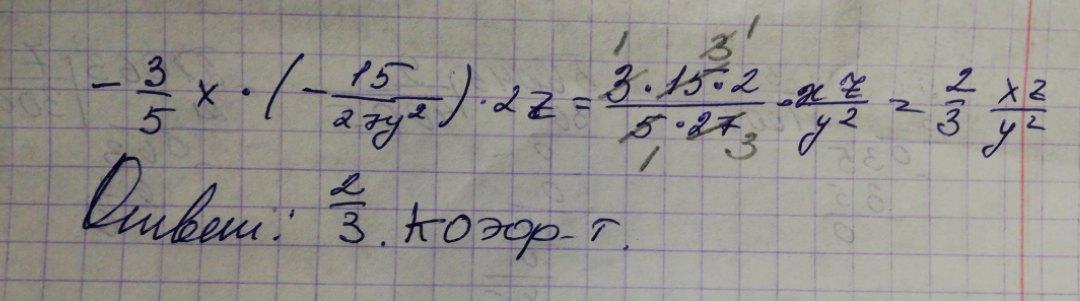 -3/5 x · (-15/27y²) · 2z = 3·15·2/5·27 · xz/y² = 2/3 xz/y²
Ответ: 2/3. коэф-т.